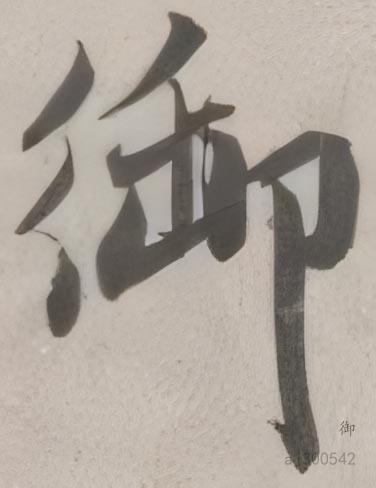 御
御
a1300542